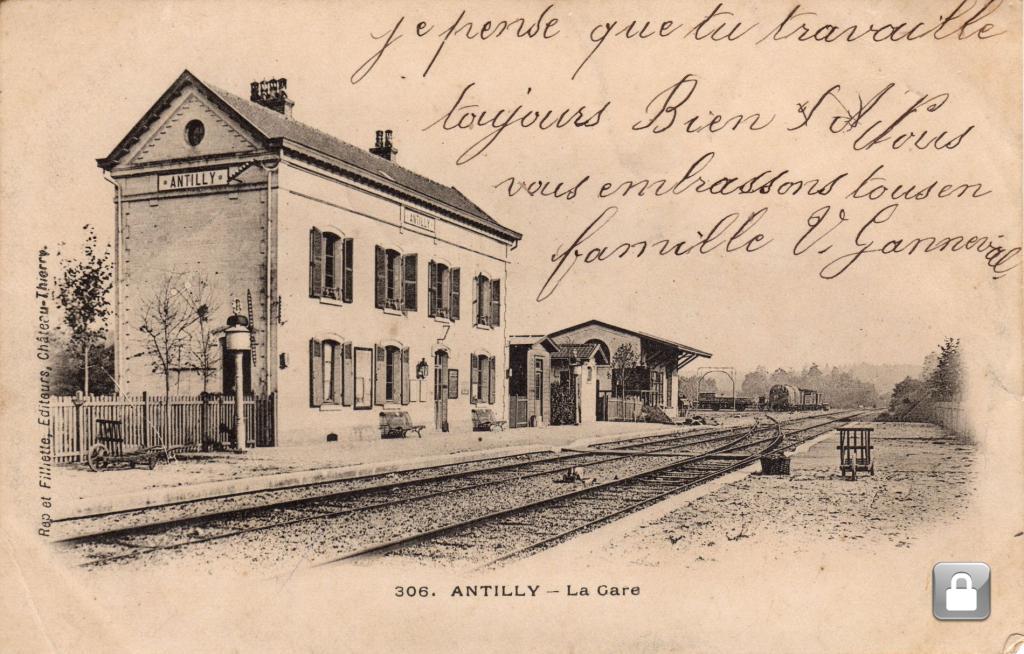 je pense que tu travaille
toujours Bien Nous
vous embrassons tous en
famille V. Ganneval
ANTILLY
ANTILLY
Rep et Filliette, Editeurs, Château-Thierry
306. ANTILLY – La Gare